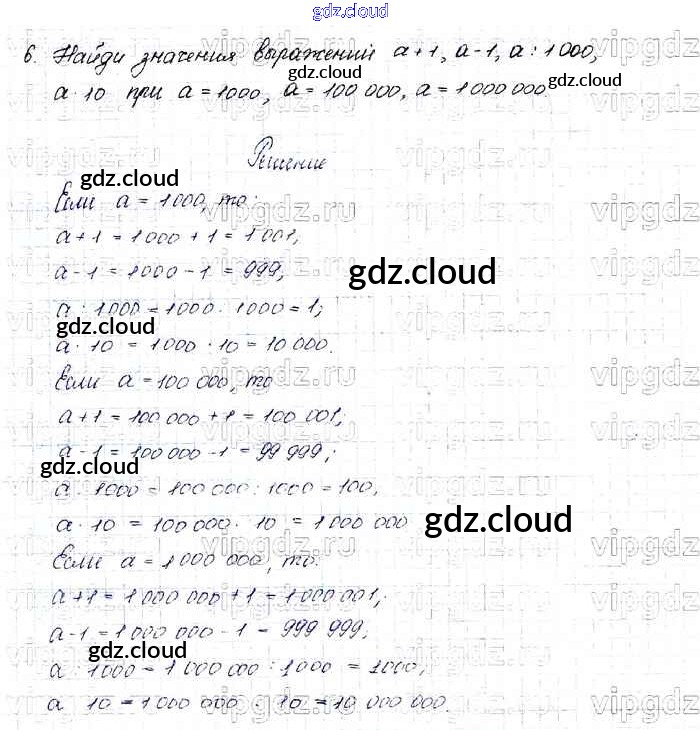 gdz.cloud
6. Найди значения выражений a+1, a-1, a : 1000,
gdz.cloud
gdz.cloud
a · 10 при a = 1000, a = 100 000, a = 1 000 000
Решение
gdz.cloud
Если a = 1000, то:
a+1 = 1000 + 1 = 1001,
a-1 = 1000 - 1 = 999;
gdz.cloud
a : 1000 = 1000 : 1000 = 1;
gdz.cloud
a · 10 = 1000 · 10 = 10 000.
Если a = 100 000, то
a+1 = 100 000 + 1 = 100 001;
a-1 = 100 000 - 1 = 99 999;
gdz.cloud
a : 1000 = 100 000 : 1000 = 100,
a · 10 = 100 000 · 10 = 1 000 000
gdz.cloud
Если a = 1 000 000, то:
a+1 = 1 000 000 + 1 = 1 000 001;
a-1 = 1 000 000 - 1 = 999 999;
gdz.cloud
a : 1000 = 1 000 000 : 1000 = 1000,
a 10 = 1 000 000 · 10 = 10 000 000.
vipgdz.ru